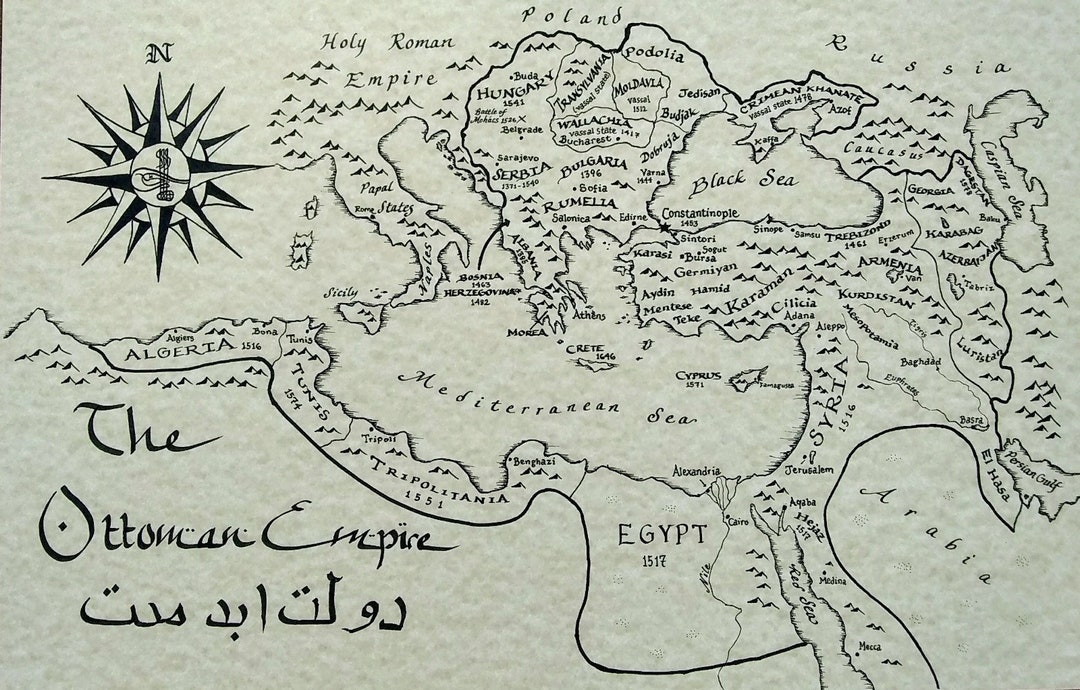 Poland
Holy Roman
Empire
Russia
N
Podolia
Buda
HUNGARY
1541
TRANSYLVANIA
(vassal state)
MOLDAVIA
vassal
1512
Jedisan
CRIMEAN KHANATE
vassal state 1478
Azof
Battle of
Mohács 1526 X
Belgrade
WALLACHIA
vassal state 1417
Bucharest
Budjak
Kaffa
Caucasus
Caspian Sea
Sarajevo
SERBIA
1371-1540
BULGARIA
1396
Dobruja
Varna
1444
Black Sea
DAGESTAN
GEORGIA
Papal
States
Rome
Sofia
RUMELIA
Salonica
Edirne
Constantinople
1453
Sinope
Samsu
TREBIZOND
1461
Erzerum
KARABAG
Baku
AZERBAIJAN
Naples
ALBANIA
Sintori
Karasi
Sogut
Bursa
Germiyan
ARMENIA
Van
Tabriz
BOSNIA
1463
HERZEGOVINA
1482
Sicily
Aydin
Hamid
Karaman
Cilicia
Adana
KURDISTAN
Mentese
Teke
Athens
MOREA
Algiers
Bona
Tunis
ALGERIA 1516
CRETE
1646
Aleppo
Mesopotamia
Tigris
Luristan
Baghdad
TUNIS
1574
Mediterranean Sea
CYPRUS
1571
Famagusta
SYRIA
1516
Euphrates
Basra
The
Tripoli
TRIPOLITANIA
1551
Benghazi
Alexandria
Jerusalem
El Hasa
Persian Gulf
Ottoman Empire
EGYPT
1517
Cairo
Aqaba
Hejaz
1517
Arabia
Nile
Red Sea
Medina
Mecca
دولت ابد مدت